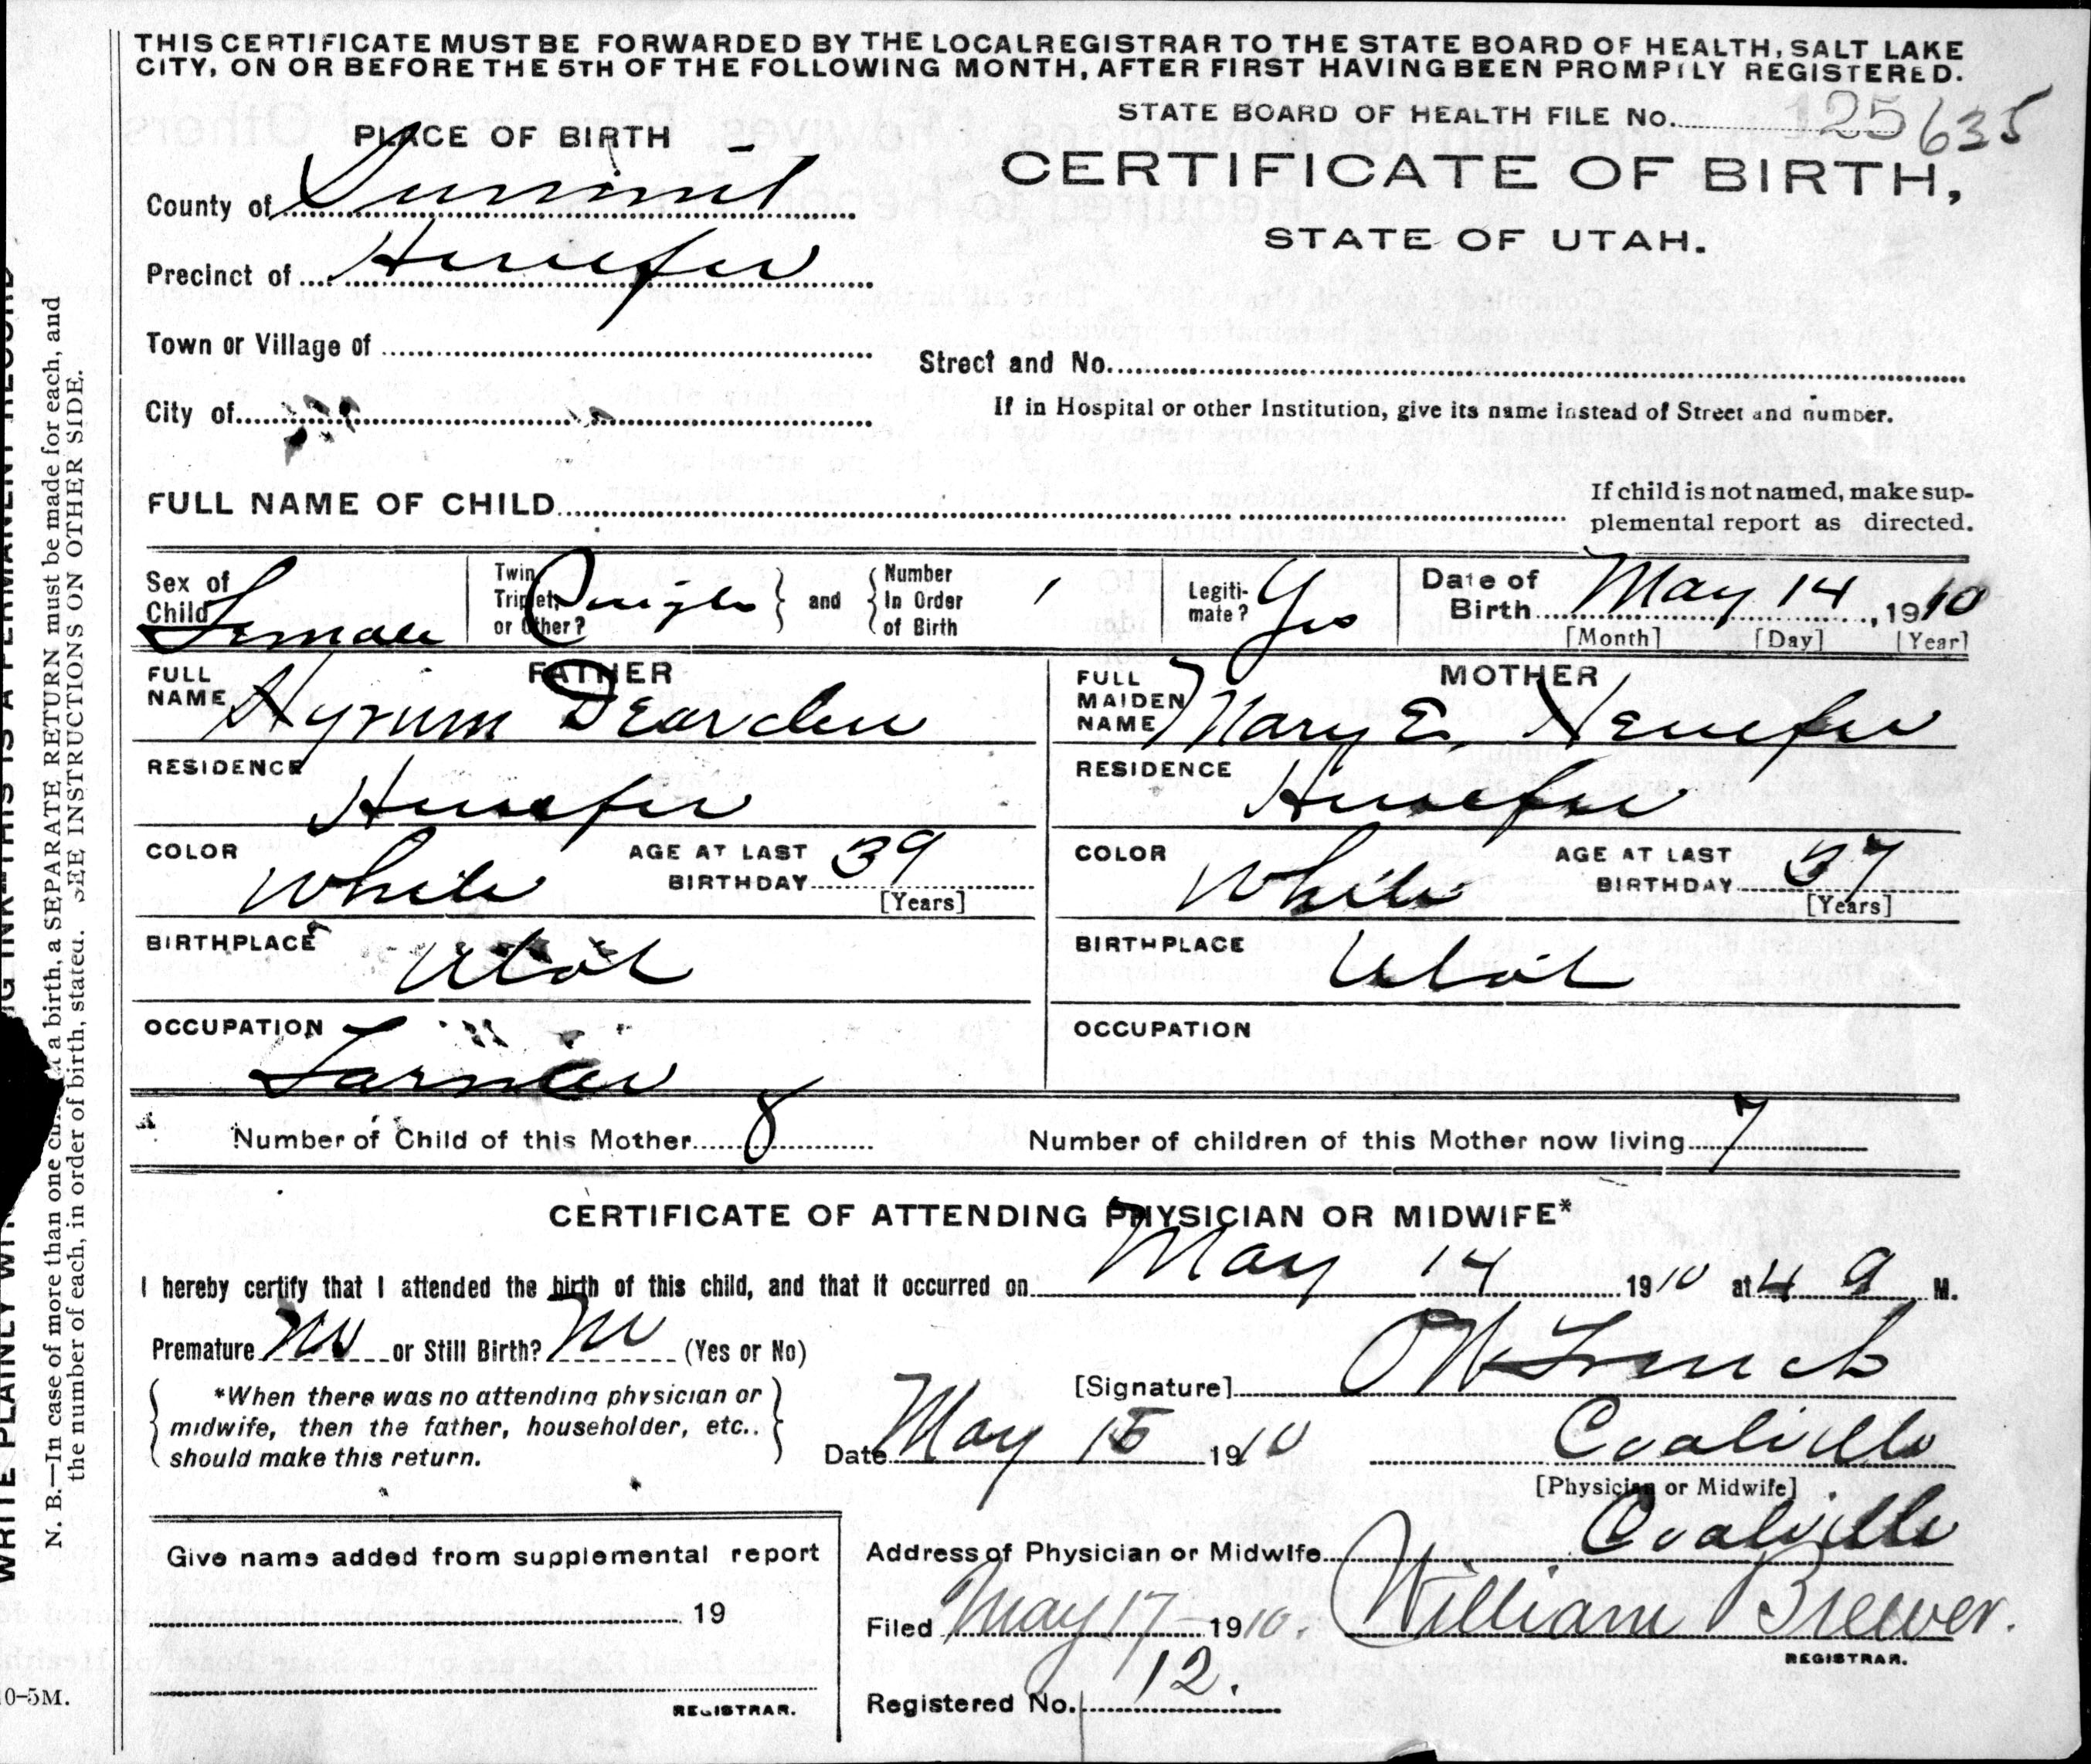 THIS CERTIFICATE MUST BE FORWARDED BY THE LOCAL REGISTRAR TO THE STATE BOARD OF HEALTH, SALT LAKE
CITY, ON OR BEFORE THE 5TH OF THE FOLLOWING MONTH, AFTER FIRST HAVING BEEN PROMPTLY REGISTERED.
STATE BOARD OF HEALTH FILE No. 125635
PLACE OF BIRTH
CERTIFICATE OF BIRTH,
STATE OF UTAH.
County of Summit
Precinct of Henefer
Town or Village of
Street and No.
City of
If in Hospital or other Institution, give its name instead of Street and number.
FULL NAME OF CHILD
If child is not named, make sup-
plemental report as directed.
Sex of Child Female
Twin, Triplet, or Other? Single
and
Number In Order of Birth 1
Legiti-mate? Yes
Date of Birth May 14, 1910
[Month] [Day] [Year]
FATHER
FULL NAME Hyrum Dearden
RESIDENCE
Henefer
COLOR White
AGE AT LAST BIRTHDAY 39
[Years]
BIRTHPLACE Utah
OCCUPATION
Farmer
MOTHER
FULL MAIDEN NAME Mary E. Henefer
RESIDENCE
Henefer
COLOR White
AGE AT LAST BIRTHDAY 37
[Years]
BIRTHPLACE Utah
OCCUPATION
Number of Child of this Mother 8
Number of children of this Mother now living 7
CERTIFICATE OF ATTENDING PHYSICIAN OR MIDWIFE*
I hereby certify that I attended the birth of this child, and that it occurred on May 14 1910 at 4 a M.
Premature No or Still Birth? No (Yes or No)
*When there was no attending physician or
midwife, then the father, householder, etc..
should make this return.
[Signature]
Date May 15 1910
Coalville
[Physician or Midwife]
Address of Physician or Midwife Coalville
Give name added from supplemental report
19
REGISTRAR.
Filed May 17 1910. William Brewer.
REGISTRAR.
Registered No. 12.
N. B.—In case of more than one a birth, a SEPARATE RETURN must be made for each, and
the number of each, in order of birth, stated. SEE INSTRUCTIONS ON OTHER SIDE.
WRITE PLAINLY INK—THIS IS A PERMANENT RECORD
0-5M.